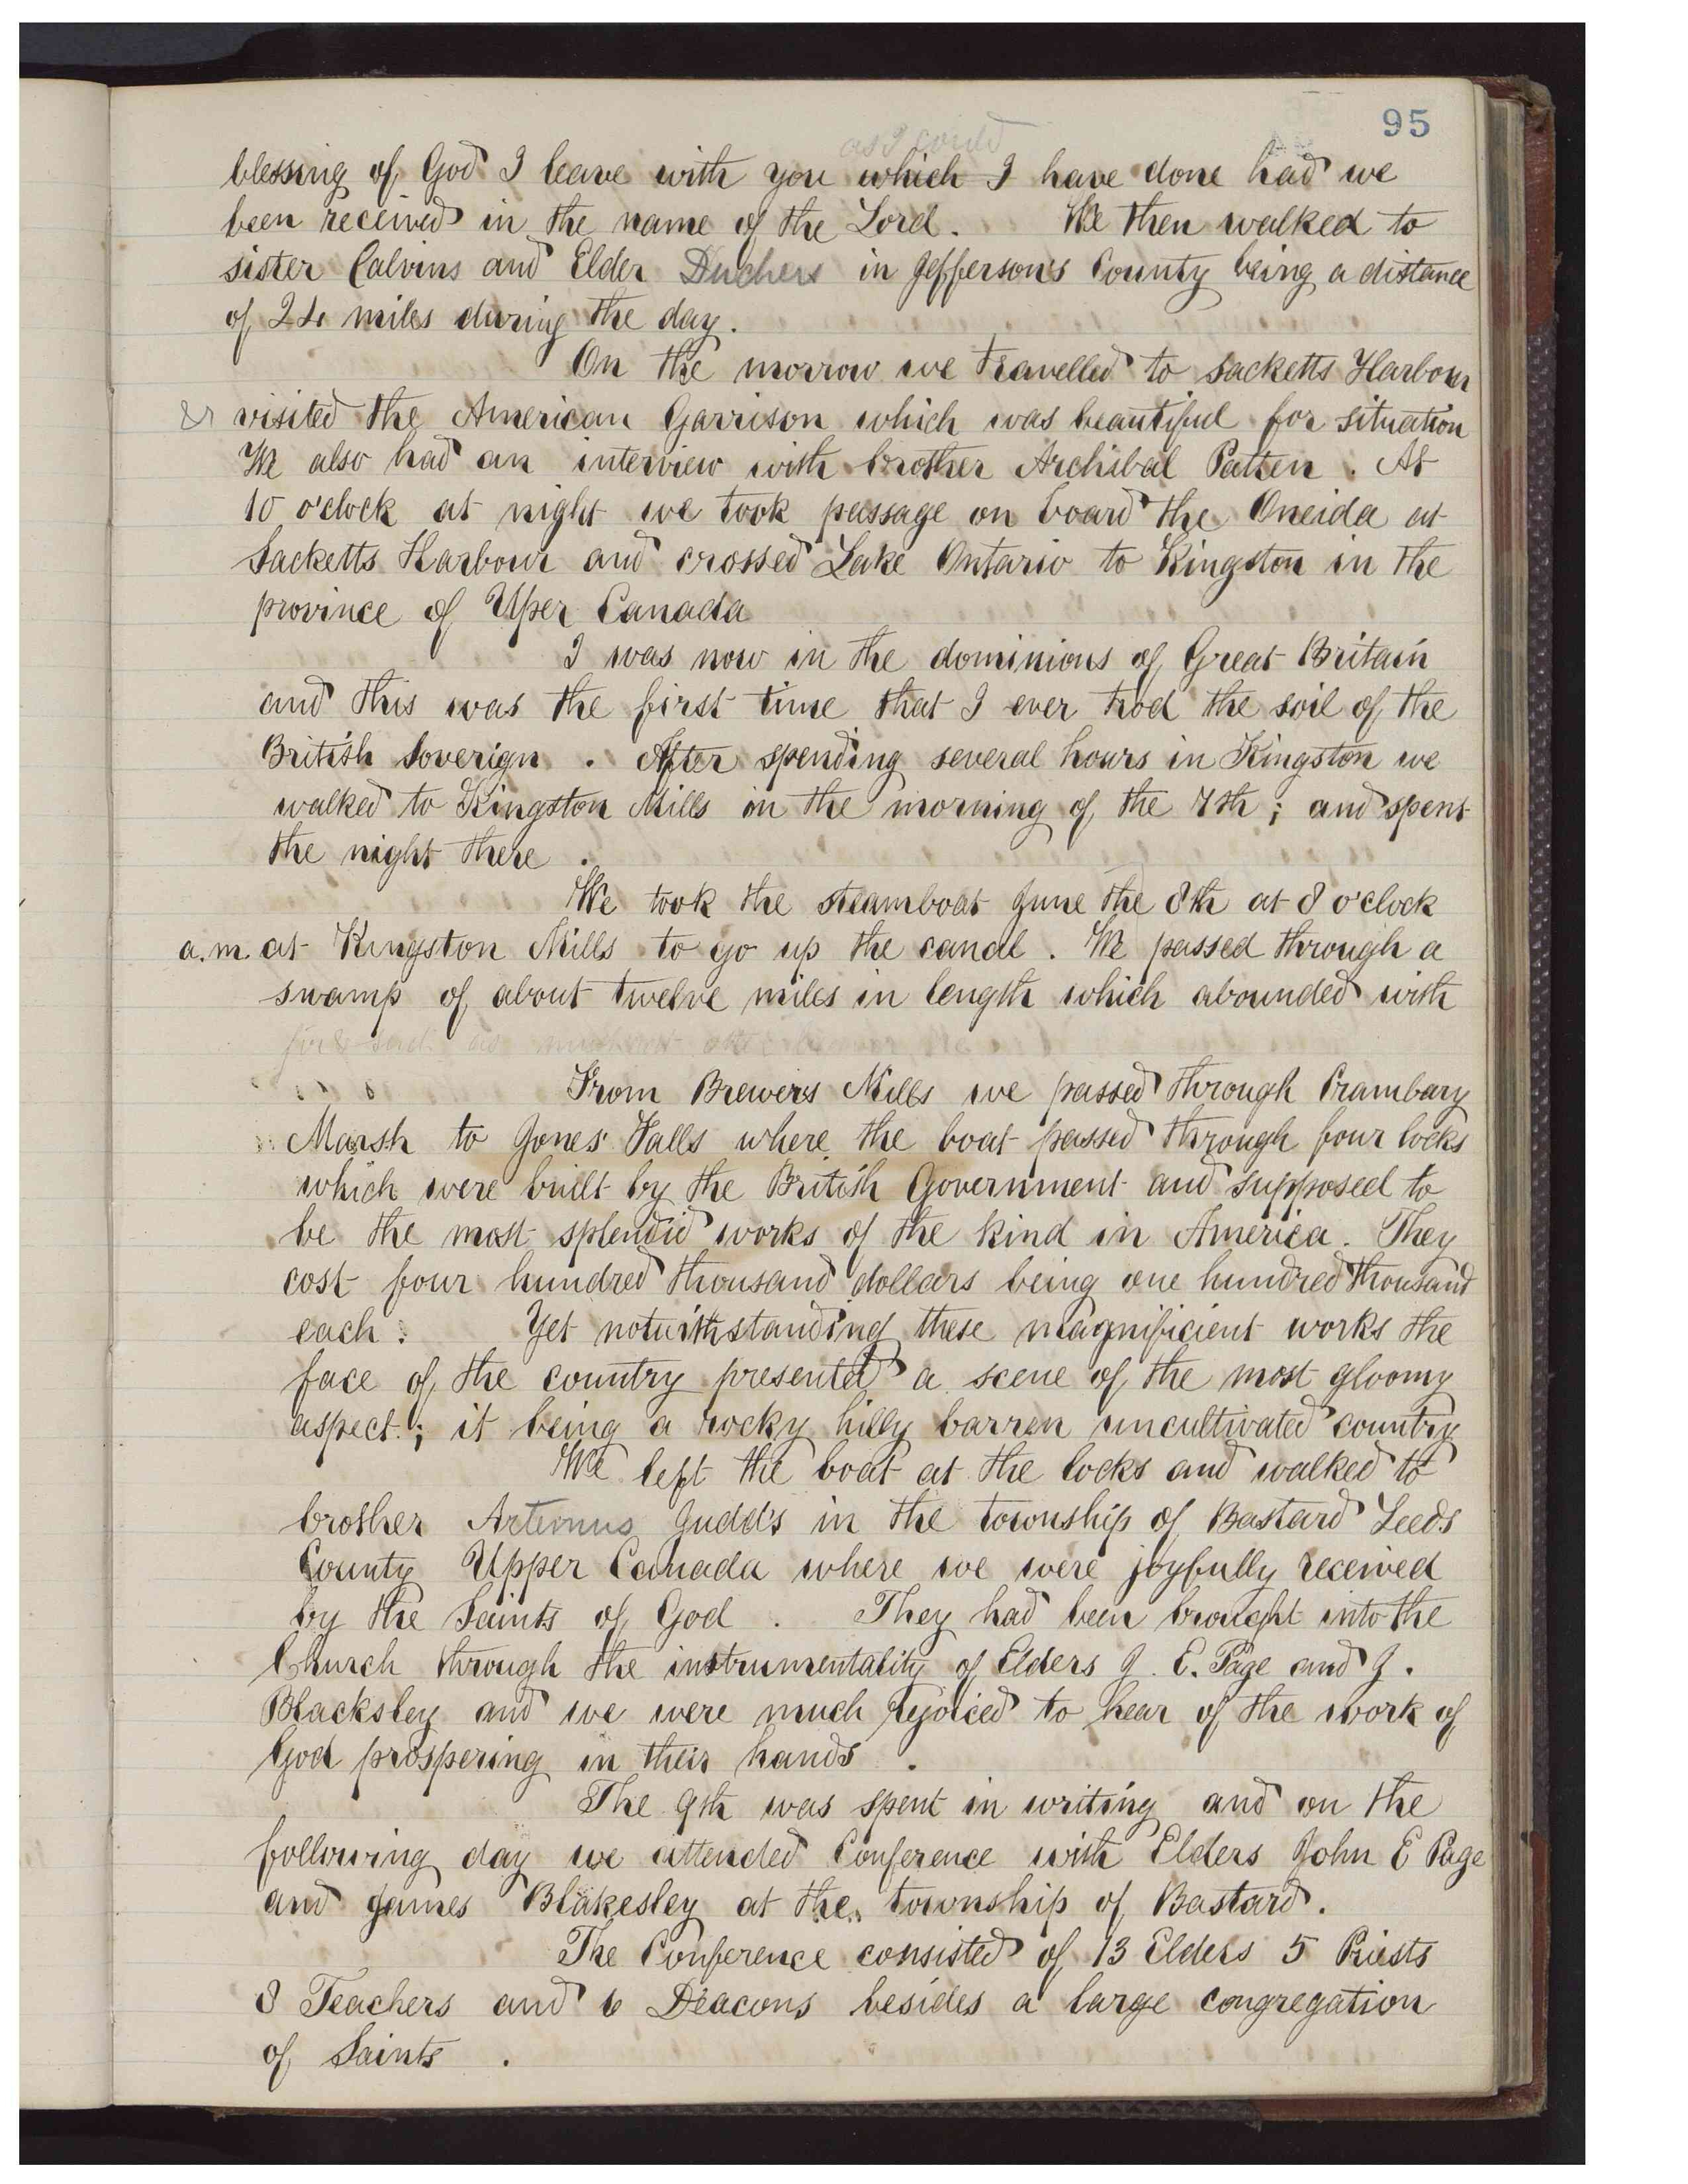 95
as I could
blessing of God I leave with you which I have done had we
been received in the name of the Lord. We then walked to
sister Calvins and Elder Duchers in Jefferson's County being a distance
of 24 miles during the day.
On the morrow we travelled to Sacketts Harbour
& visited the American Garrison which was beautiful for situation
We also had an interview with brother Archibal Patten. At
10 o'clock at night we took passage on board the Oneida at
Sacketts Harbour and crossed Lake Ontario to Kingston in the
province of Uper Canada
I was now in the dominions of Great Britain
and this was the first time that I ever trod the soil of the
British Soverign. After spending several hours in Kingston we
walked to Kingston Mills in the morning of the 7th; and spent
the night there.
We took the steamboat June the 8th at 8 o'clock
a.m. at Kingston Mills to go up the canal. We passed through a
swamp of about twelve miles in length which abounded with
From Brewers Mills we passed through Crambary
Marsh to Jones' Falls where the boat passed through four locks
which were built by the British Government and supposed to
be the most splendid works of the kind in America. They
cost four hundred thousand dollars being one hundred thousand
each. Yet notwithstanding these magnificient works the
face of the country presented a scene of the most gloomy
aspect; it being a rocky hilly barren uncultivated country
We left the boat at the locks and walked to
brother Artemus Judd's in the township of Bastard Leeds
County Upper Canada where we were joyfully received
by the Saints of God. They had been brought into the
Church through the instrumentality of Elders J. E. Page and J.
Blacksley and we were much rejoiced to hear of the work of
God prospering in their hands.
The 9th was spent in writing and on the
following day we attended Conference with Elders John E Page
and James Blakesley at the township of Bastard.
The Conference consisted of 13 Elders 5 Priests
8 Teachers and 6 Deacons besides a large congregation
of Saints.